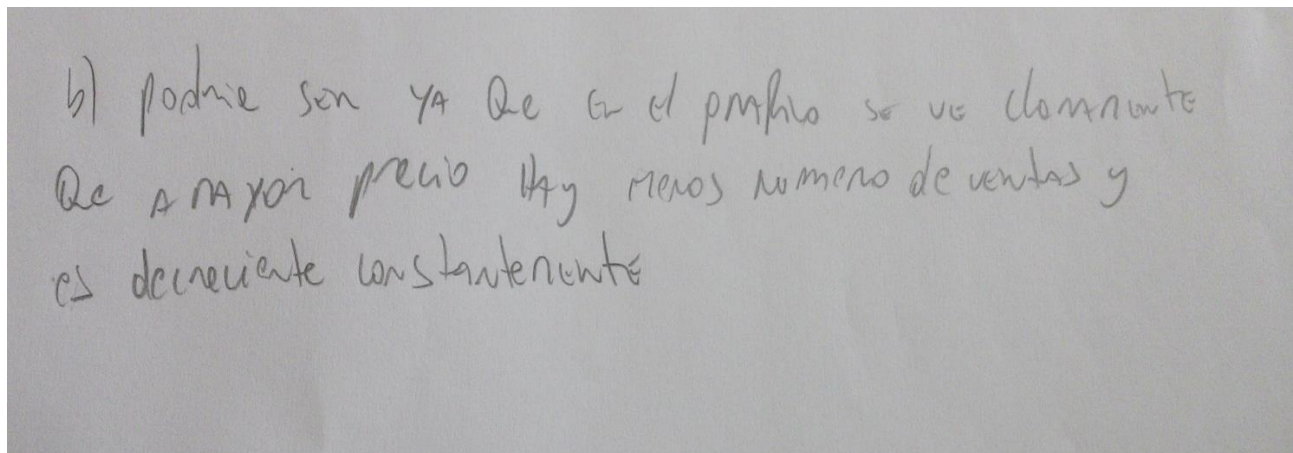 b) podria ser YA Que En El grafico se ve claramente
Que A MAYor precio HAy menos numero de ventas y
es decreciente constantemente